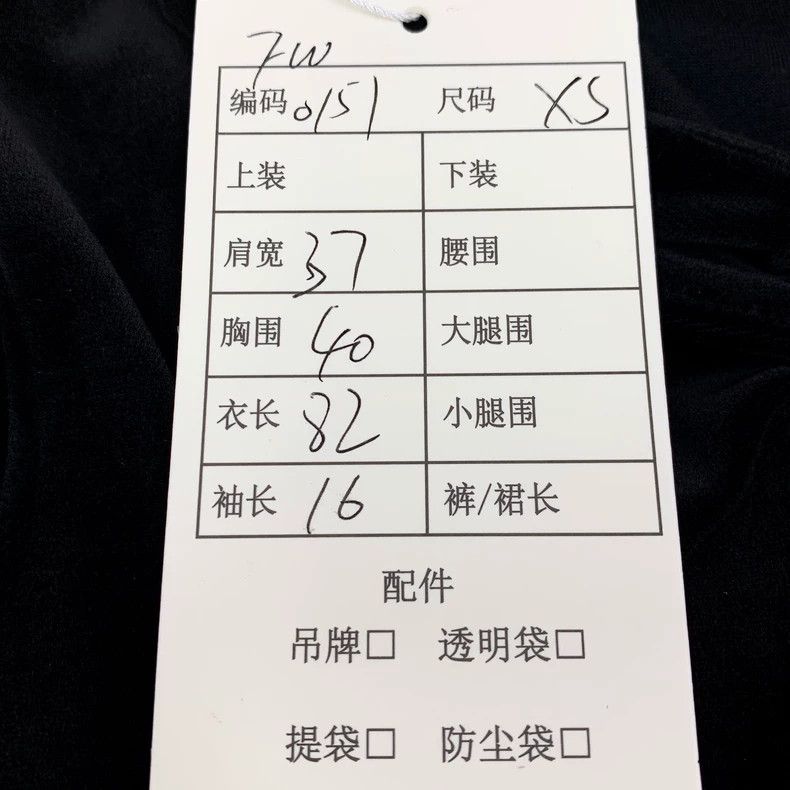 FW
编码 0151 尺码 XS
上装 下装
肩宽 37 腰围
胸围 40 大腿围
衣长 82 小腿围
袖长 16 裤/裙长
配件
吊牌□ 透明袋□
提袋□ 防尘袋□